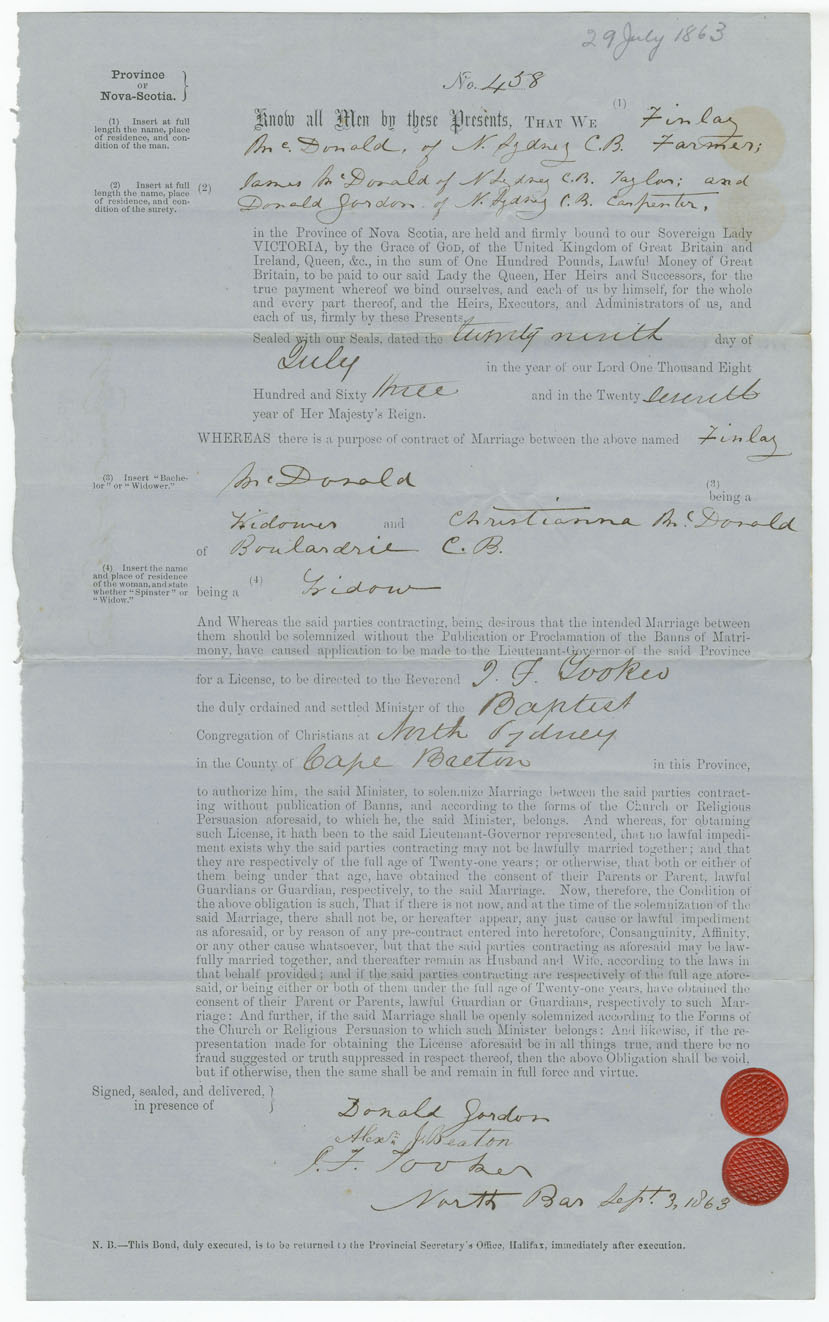 29 July 1863
Province
OF
Nova-Scotia. }
No. 458
(1) Insert at full
length the name, place
of residence, and con-
dition of the man.
Know all Men by these Presents, THAT WE (1) Finlay
McDonald, of N. Sydney C.B. Farmer;
(2) Insert at full
length the name, place
of residence, and con-
dition of the surety.
(2) James McDonald of N Sydney C.B. Taylor; and
Donald Gordon of N. Sydney C.B. Carpenter,
in the Province of Nova Scotia, are held and firmly bound to our Sovereign Lady
VICTORIA, by the Grace of GOD, of the United Kingdom of Great Britain and
Ireland, Queen, &c., in the sum of One Hundred Pounds, Lawful Money of Great
Britain, to be paid to our said Lady the Queen, Her Heirs and Successors, for the
true payment whereof we bind ourselves, and each of us by himself, for the whole
and every part thereof, and the Heirs, Executors, and Administrators of us, and
each of us, firmly by these Presents.
Sealed with our Seals, dated the twenty ninth day of
July in the year of our Lord One Thousand Eight
Hundred and Sixty three and in the Twenty seventh
year of Her Majesty's Reign.
WHEREAS there is a purpose of contract of Marriage between the above named Finlay
(3) Insert "Bache-
lor" or "Widower."
McDonald (3)
being a
Widower and Christianna McDonald
of Boulardrie C.B.
(4) Insert the name
and place of residence
of the woman, and state
whether "Spinster" or
"Widow."
being a (4) Widow
And Whereas the said parties contracting, being desirous that the intended Marriage between
them should be solemnized without the Publication or Proclamation of the Banns of Matri-
mony, have caused application to be made to the Lieutenant-Governor of the said Province
for a License, to be directed to the Reverend J. F. Tooker
the duly ordained and settled Minister of the Baptist
Congregation of Christians at North Sydney
in the County of Cape Breton in this Province,
to authorize him, the said Minister, to solemnize Marriage between the said parties contract-
ing without publication of Banns, and according to the forms of the Church or Religious
Persuasion aforesaid, to which he, the said Minister, belongs. And whereas, for obtaining
such License, it hath been to the said Lieutenant-Governor represented, that no lawful impedi-
ment exists why the said parties contracting may not be lawfully married together; and that
they are respectively of the full age of Twenty-one years; or otherwise, that both or either of
them being under that age, have obtained the consent of their Parents or Parent, lawful
Guardians or Guardian, respectively, to the said Marriage. Now, therefore, the Condition of
the above obligation is such, That if there is not now, and at the time of the solemnization of the
said Marriage, there shall not be, or hereafter appear, any just cause or lawful impediment
as aforesaid, or by reason of any pre-contract entered into heretofore, Consanguinity, Affinity,
or any other cause whatsoever, but that the said parties contracting as aforesaid may be law-
fully married together, and thereafter remain as Husband and Wife, according to the laws in
that behalf provided; and if the said parties contracting are respectively of the full age afore-
said, or being either or both of them under the full age of Twenty-one years, have obtained the
consent of their Parent or Parents, lawful Guardian or Guardians, respectively to such Mar-
riage: And further, if the said Marriage shall be openly solemnized according to the Forms of
the Church or Religious Persuasion to which such Minister belongs: And likewise, if the re-
presentation made for obtaining the License aforesaid be in all things true, and there be no
fraud suggested or truth suppressed in respect thereof, then the above Obligation shall be void,
but if otherwise, then the same shall be and remain in full force and virtue.
Signed, sealed, and delivered, }
in presence of
Donald Gordon
Alexr. J. Beaton
J. F. Tooker
North Bar Sept. 3, 1863
N. B.—This Bond, duly executed, is to be returned to the Provincial Secretary's Office, Halifax, immediately after execution.